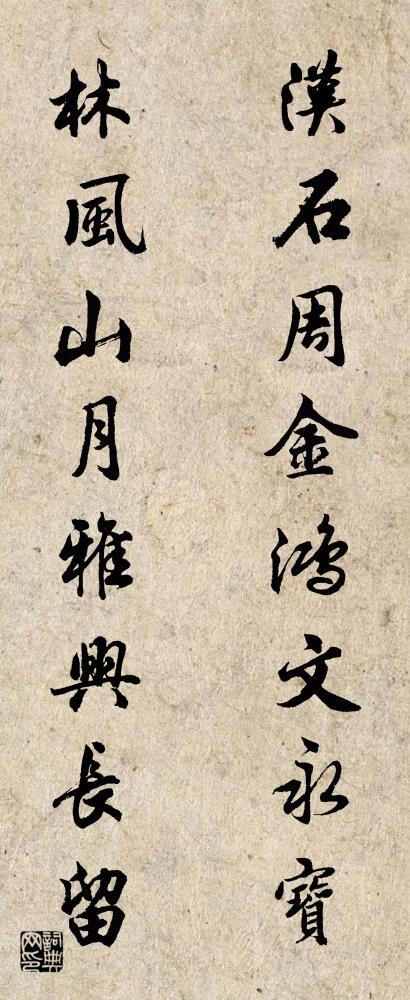 漢石周金鴻文永寶
林風山月雅興長留
詞典
网印